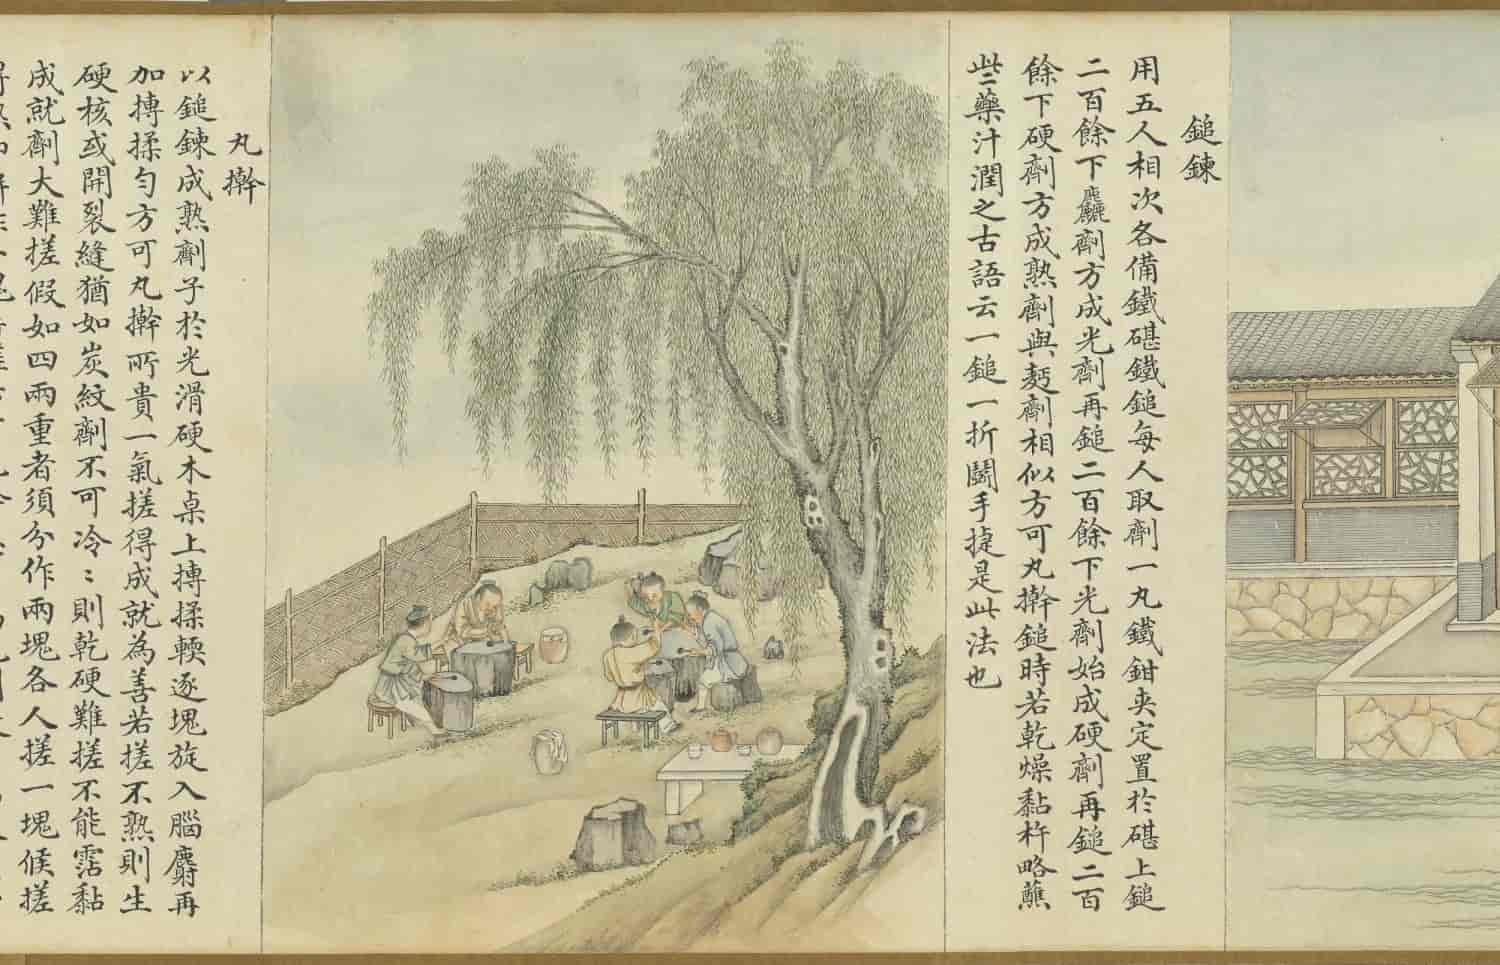 鎚鍊
用五人相次各備鐵碪鐵鎚每人取劑一丸鐵鉗夾定置於碪上鎚
二百餘下麤劑方成光劑再鎚二百餘下光劑始成硬劑再鎚二百
餘下硬劑方成熟劑與麪劑相似方可丸擀鎚時若乾燥黏杵略蘸
些藥汁潤之古語云一鎚一折鬭手捷是此法也
丸擀
以鎚鍊成熟劑子於光滑硬木桌上摶揉輭逐塊旋入腦麝再
加摶揉勻方可丸擀所貴一氣搓得成就為善若搓不熟則生
硬核或開裂縫猶如炭紋劑不可冷〻則乾硬難搓不能霑黏
成就劑大難搓假如四兩重者須分作兩塊各人搓一塊候搓